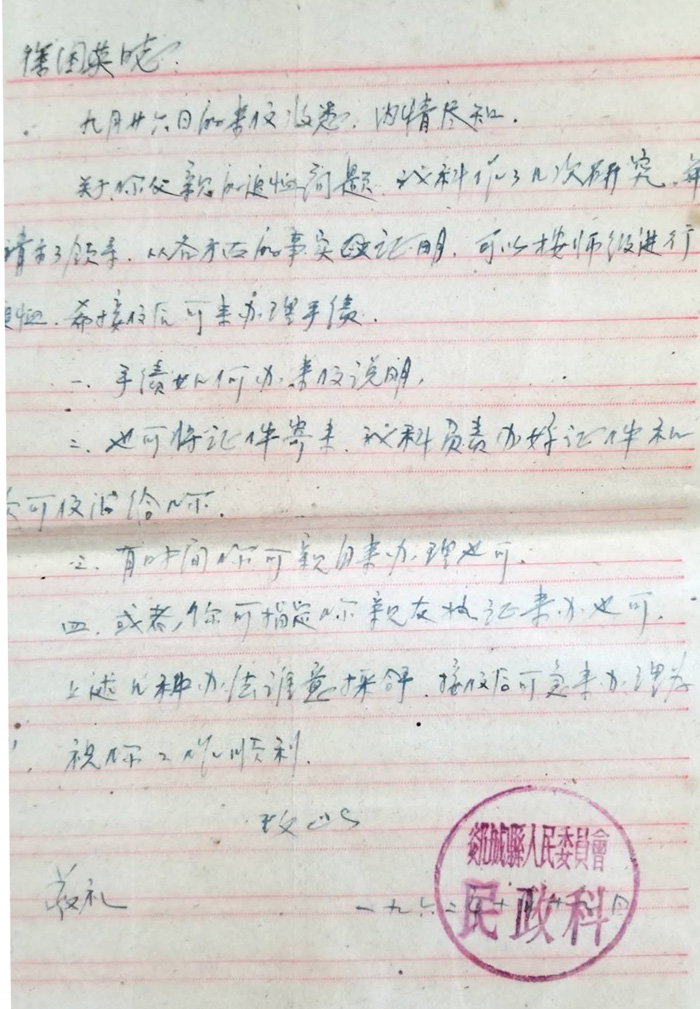 徐国英同志：
九月廿六日的来信收悉，内情尽知。
关于你父亲的追恤问题，我科作了几次研究，并
请示了领导，从各方面的事实证明，可以按师级进行
追恤，希接信后可来办理手续。
一、手续如何办，来信说明，
二、也可将证件寄来，我科负责办好证件和
款可信汇给你。
三、有时间你可亲自来办理也可。
四、或者，你可指定你亲友持证来办也可，
上述几种办法谁意採纳，接信后可急来办理为
祝你工作顺利，
致以
敬礼
一九六二年十月十九日
郯城縣人民委員會
民政科